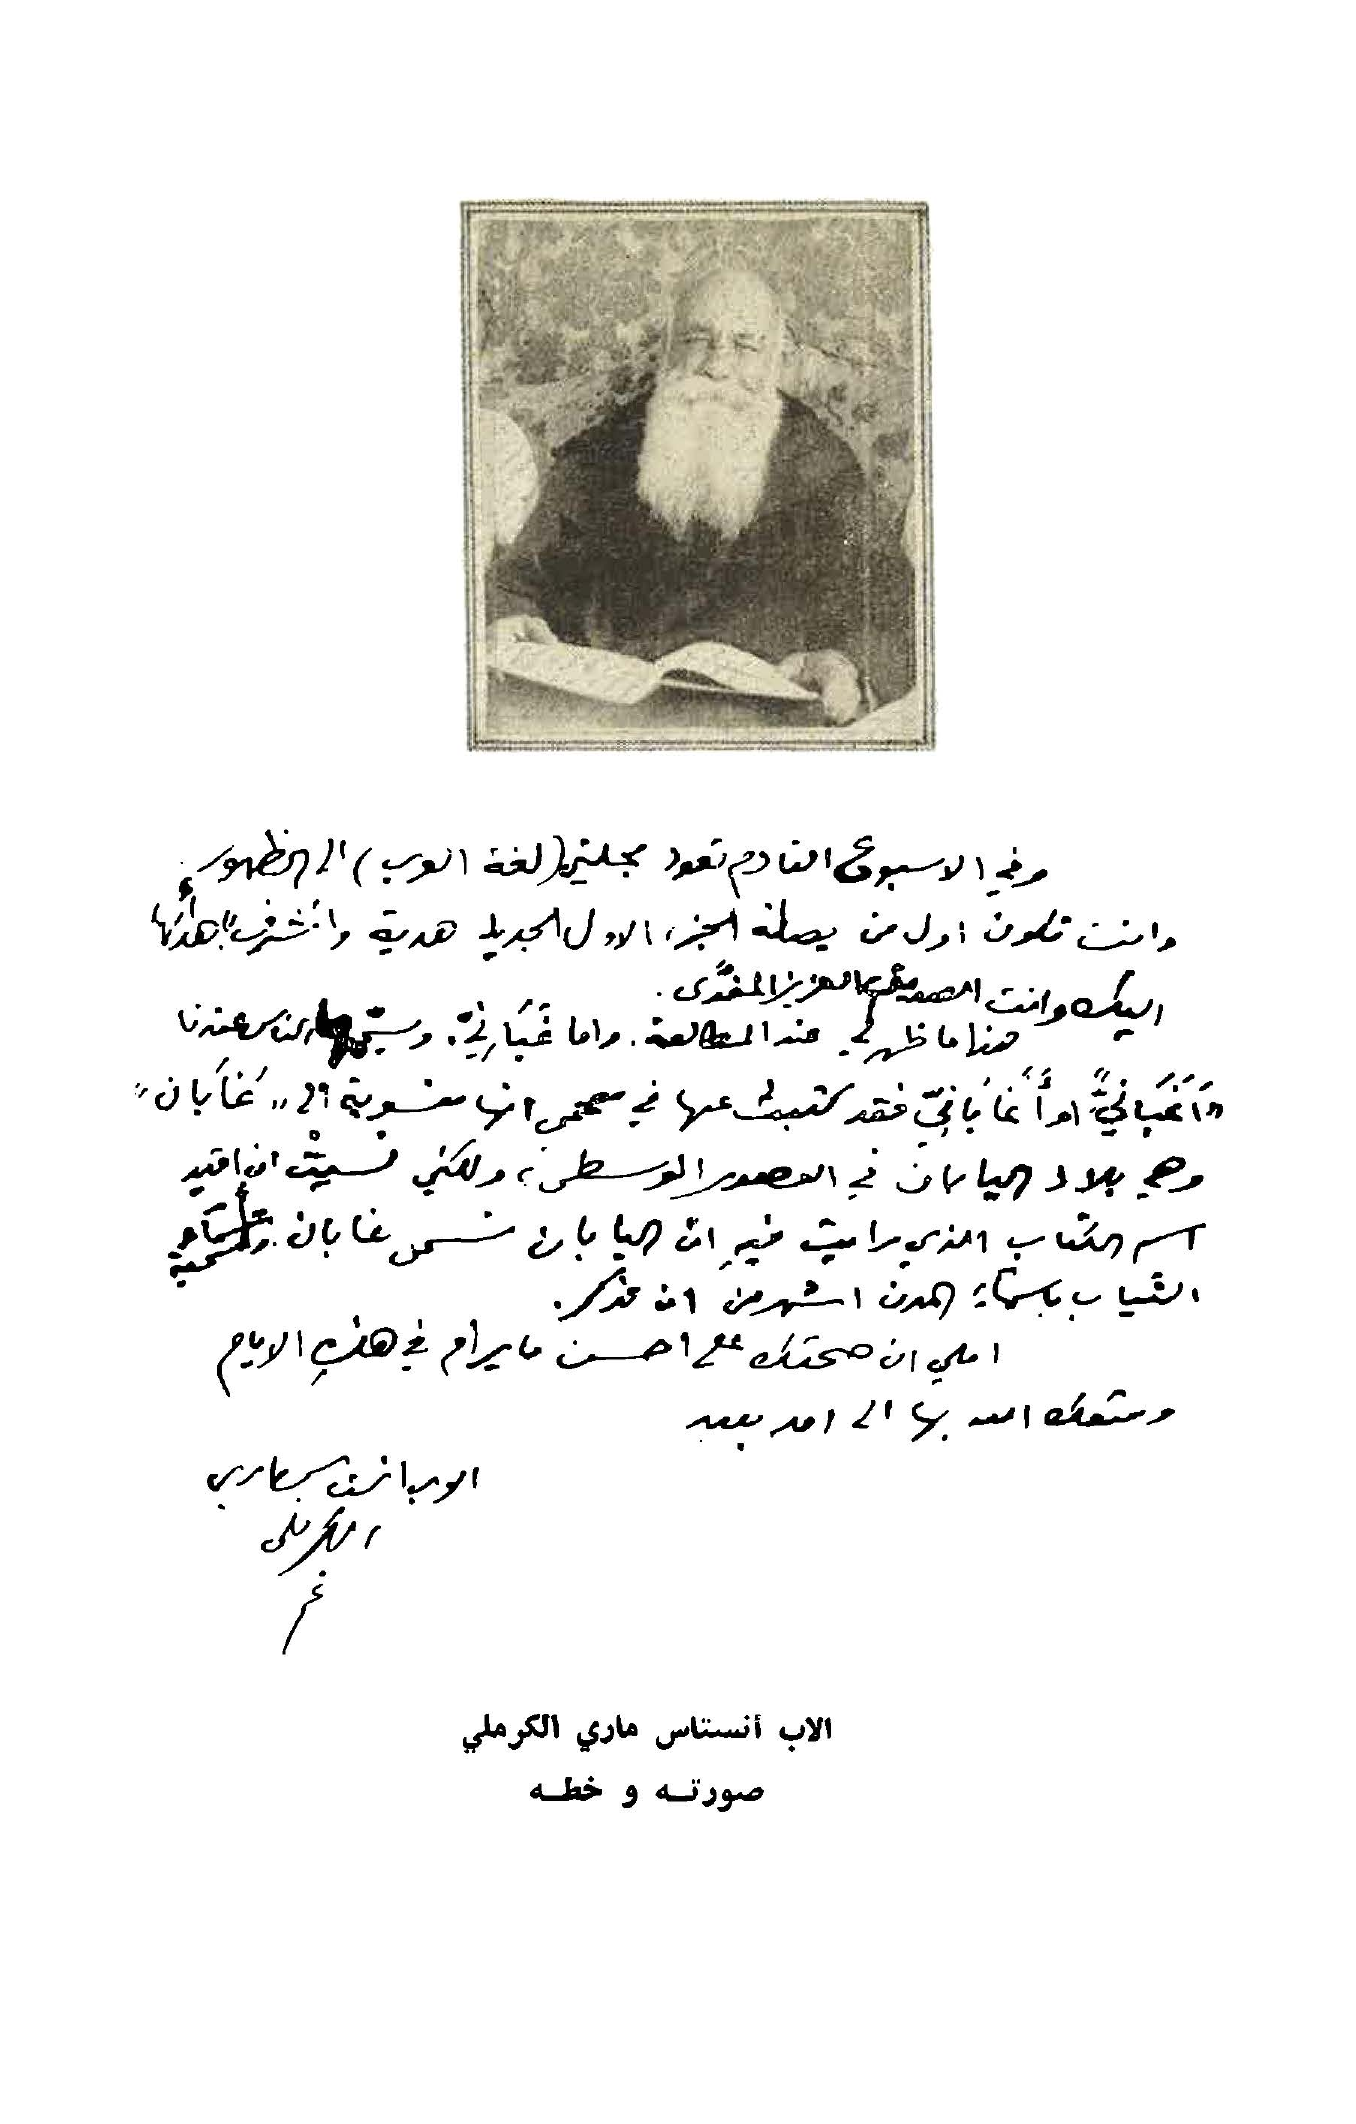 وفي الاسبوع القادم تعود مجلتي (لغة العرب) الى الظهور
وانت تكون اول من يصله الجزء الاول الجديد هدية واتشرف باهدائها
اليك وانت الصديق العزيز المفدَّى.
هذا ما ظهر لي عند المطالعة. واما غَبَانِيّ، ويسمّيها الناس عندنا
"أَغَبانيّ" او أَغابَانِيّ فقد كتبت عنها في معجمي انها منسوبة الى "غابان"
وهي بلاد اليابان في العصور الوسطى، ولكني نسيتُ ان اقيد
اسم الكتاب الذي رأيت فيهِ ان اليابان تسمى غابان. وتسمية
الثياب باسماء المدن اشهر من ان تذكر.
املي ان صحتك على احسن ما يرام في هذهِ الايام
ومتعك الله بها الى امد بعيد
الاب انستاس ماري
الكرملي
الاب أنستاس ماري الكرملي
صورتــه و خطــه